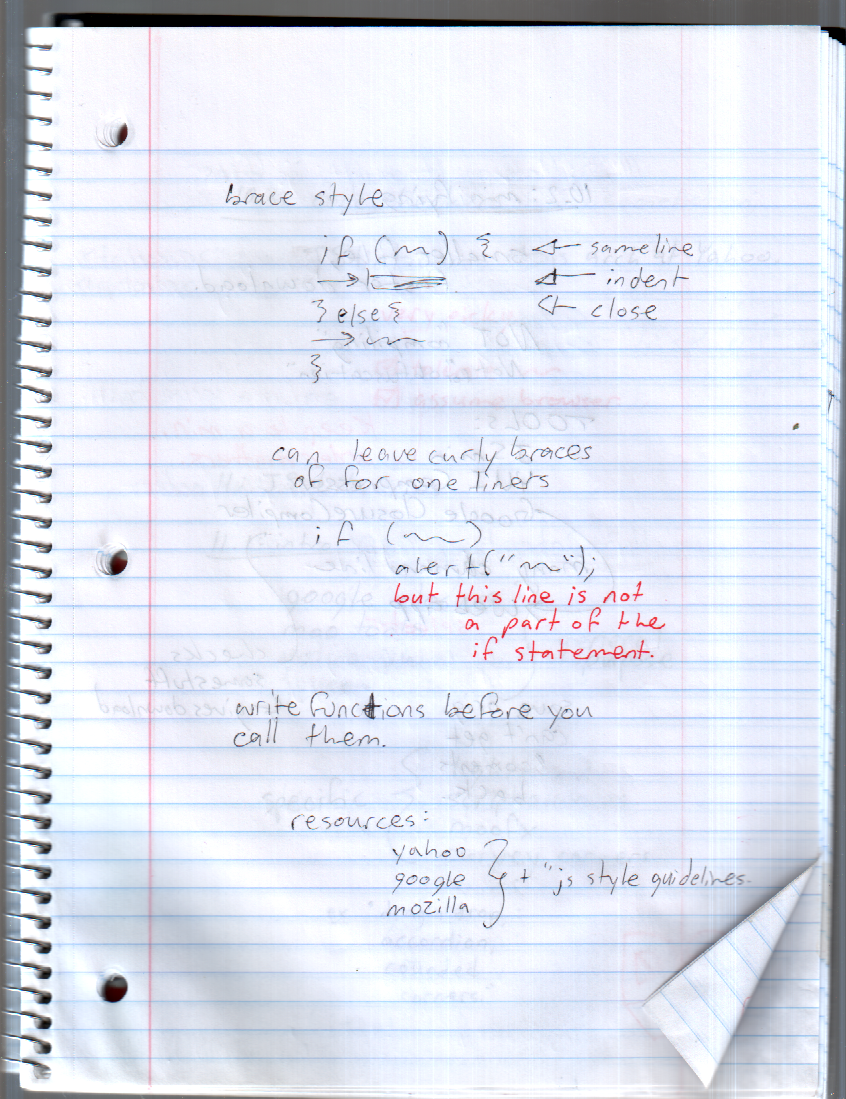 brace style
if (~) { ← same line
→ ← indent
} else { ← close
→ ~
}
can leave curly braces
of for one liners
if (~)
alert("~");
but this line is not
a part of the
if statement.
write functions before you
call them.
resources:
yahoo
google } + "js style guidelines.
mozilla